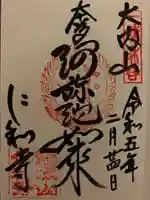 大内山
令和五年
二月廿四日
奉拝
阿弥陀如来
仁和寺